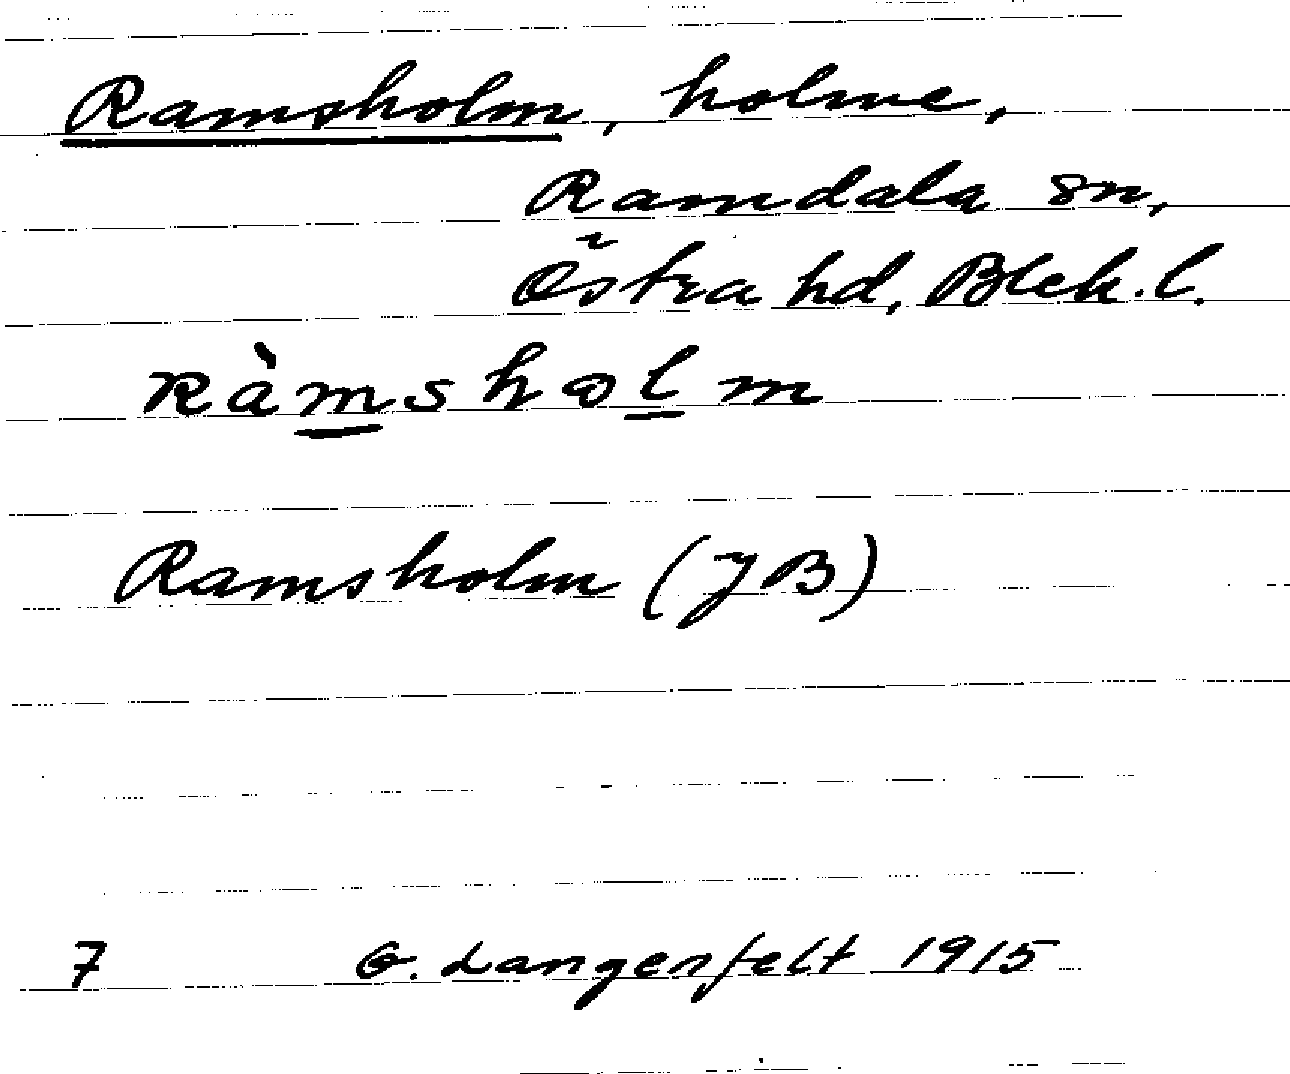 Ramsholm, holme,
Ramdala sn,
Östra hd, Blek. l.
Ràmshəlm
Ramsholm (JB)
7 G. Langenfelt 1915